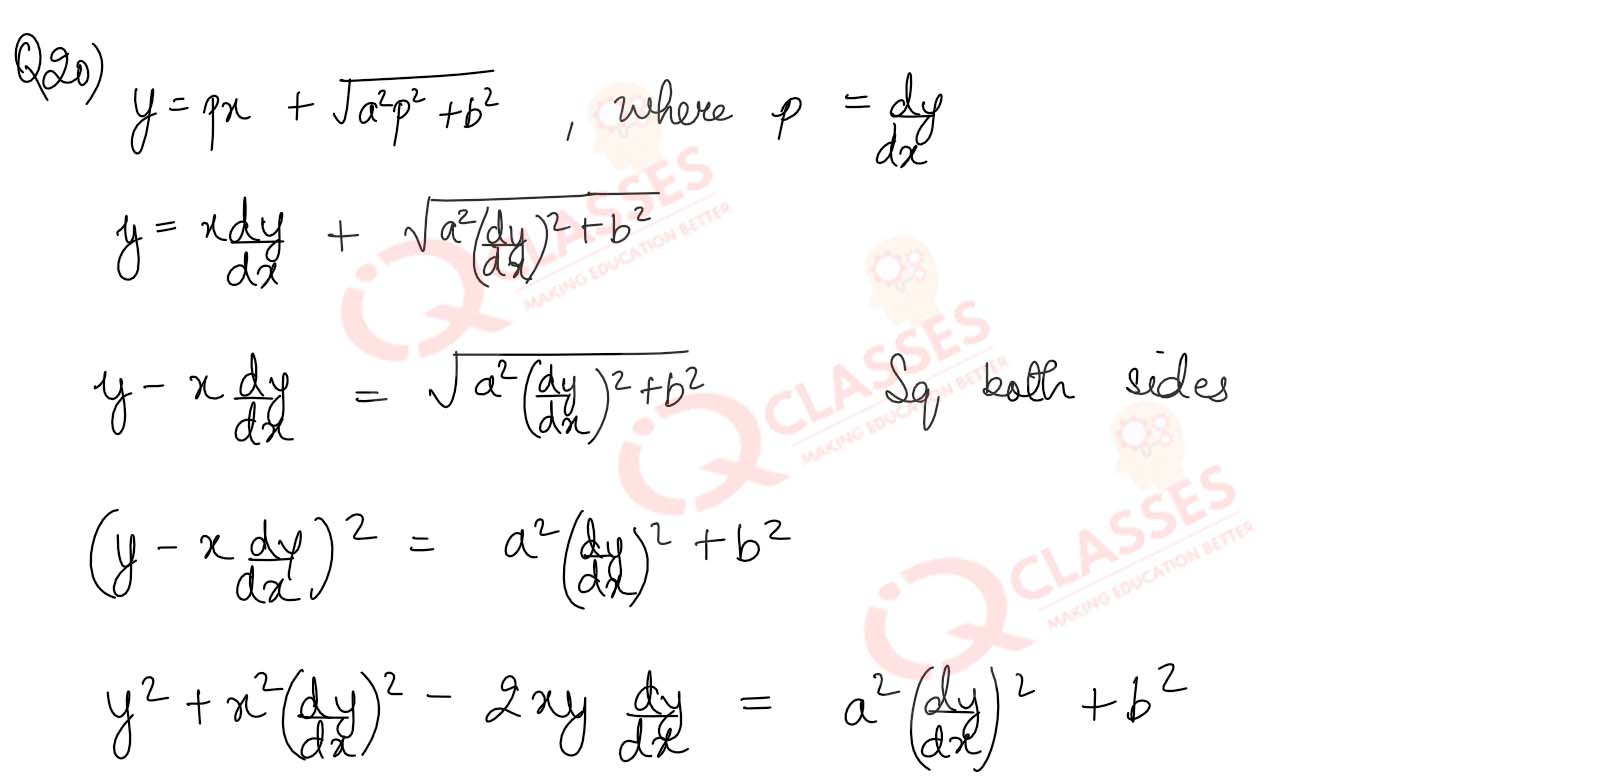 Q20)
y = px + √(a²p² + b²) , where p = dy/dx
y = x dy/dx + √(a²(dy/dx)² + b²)
y - x dy/dx = √(a²(dy/dx)² + b²) Sq both sides
(y - x dy/dx)² = a²(dy/dx)² + b²
y² + x²(dy/dx)² - 2xy dy/dx = a²(dy/dx)² + b²
iQ CLASSES
MAKING EDUCATION BETTER
iQ CLASSES
MAKING EDUCATION BETTER
iQ CLASSES
MAKING EDUCATION BETTER